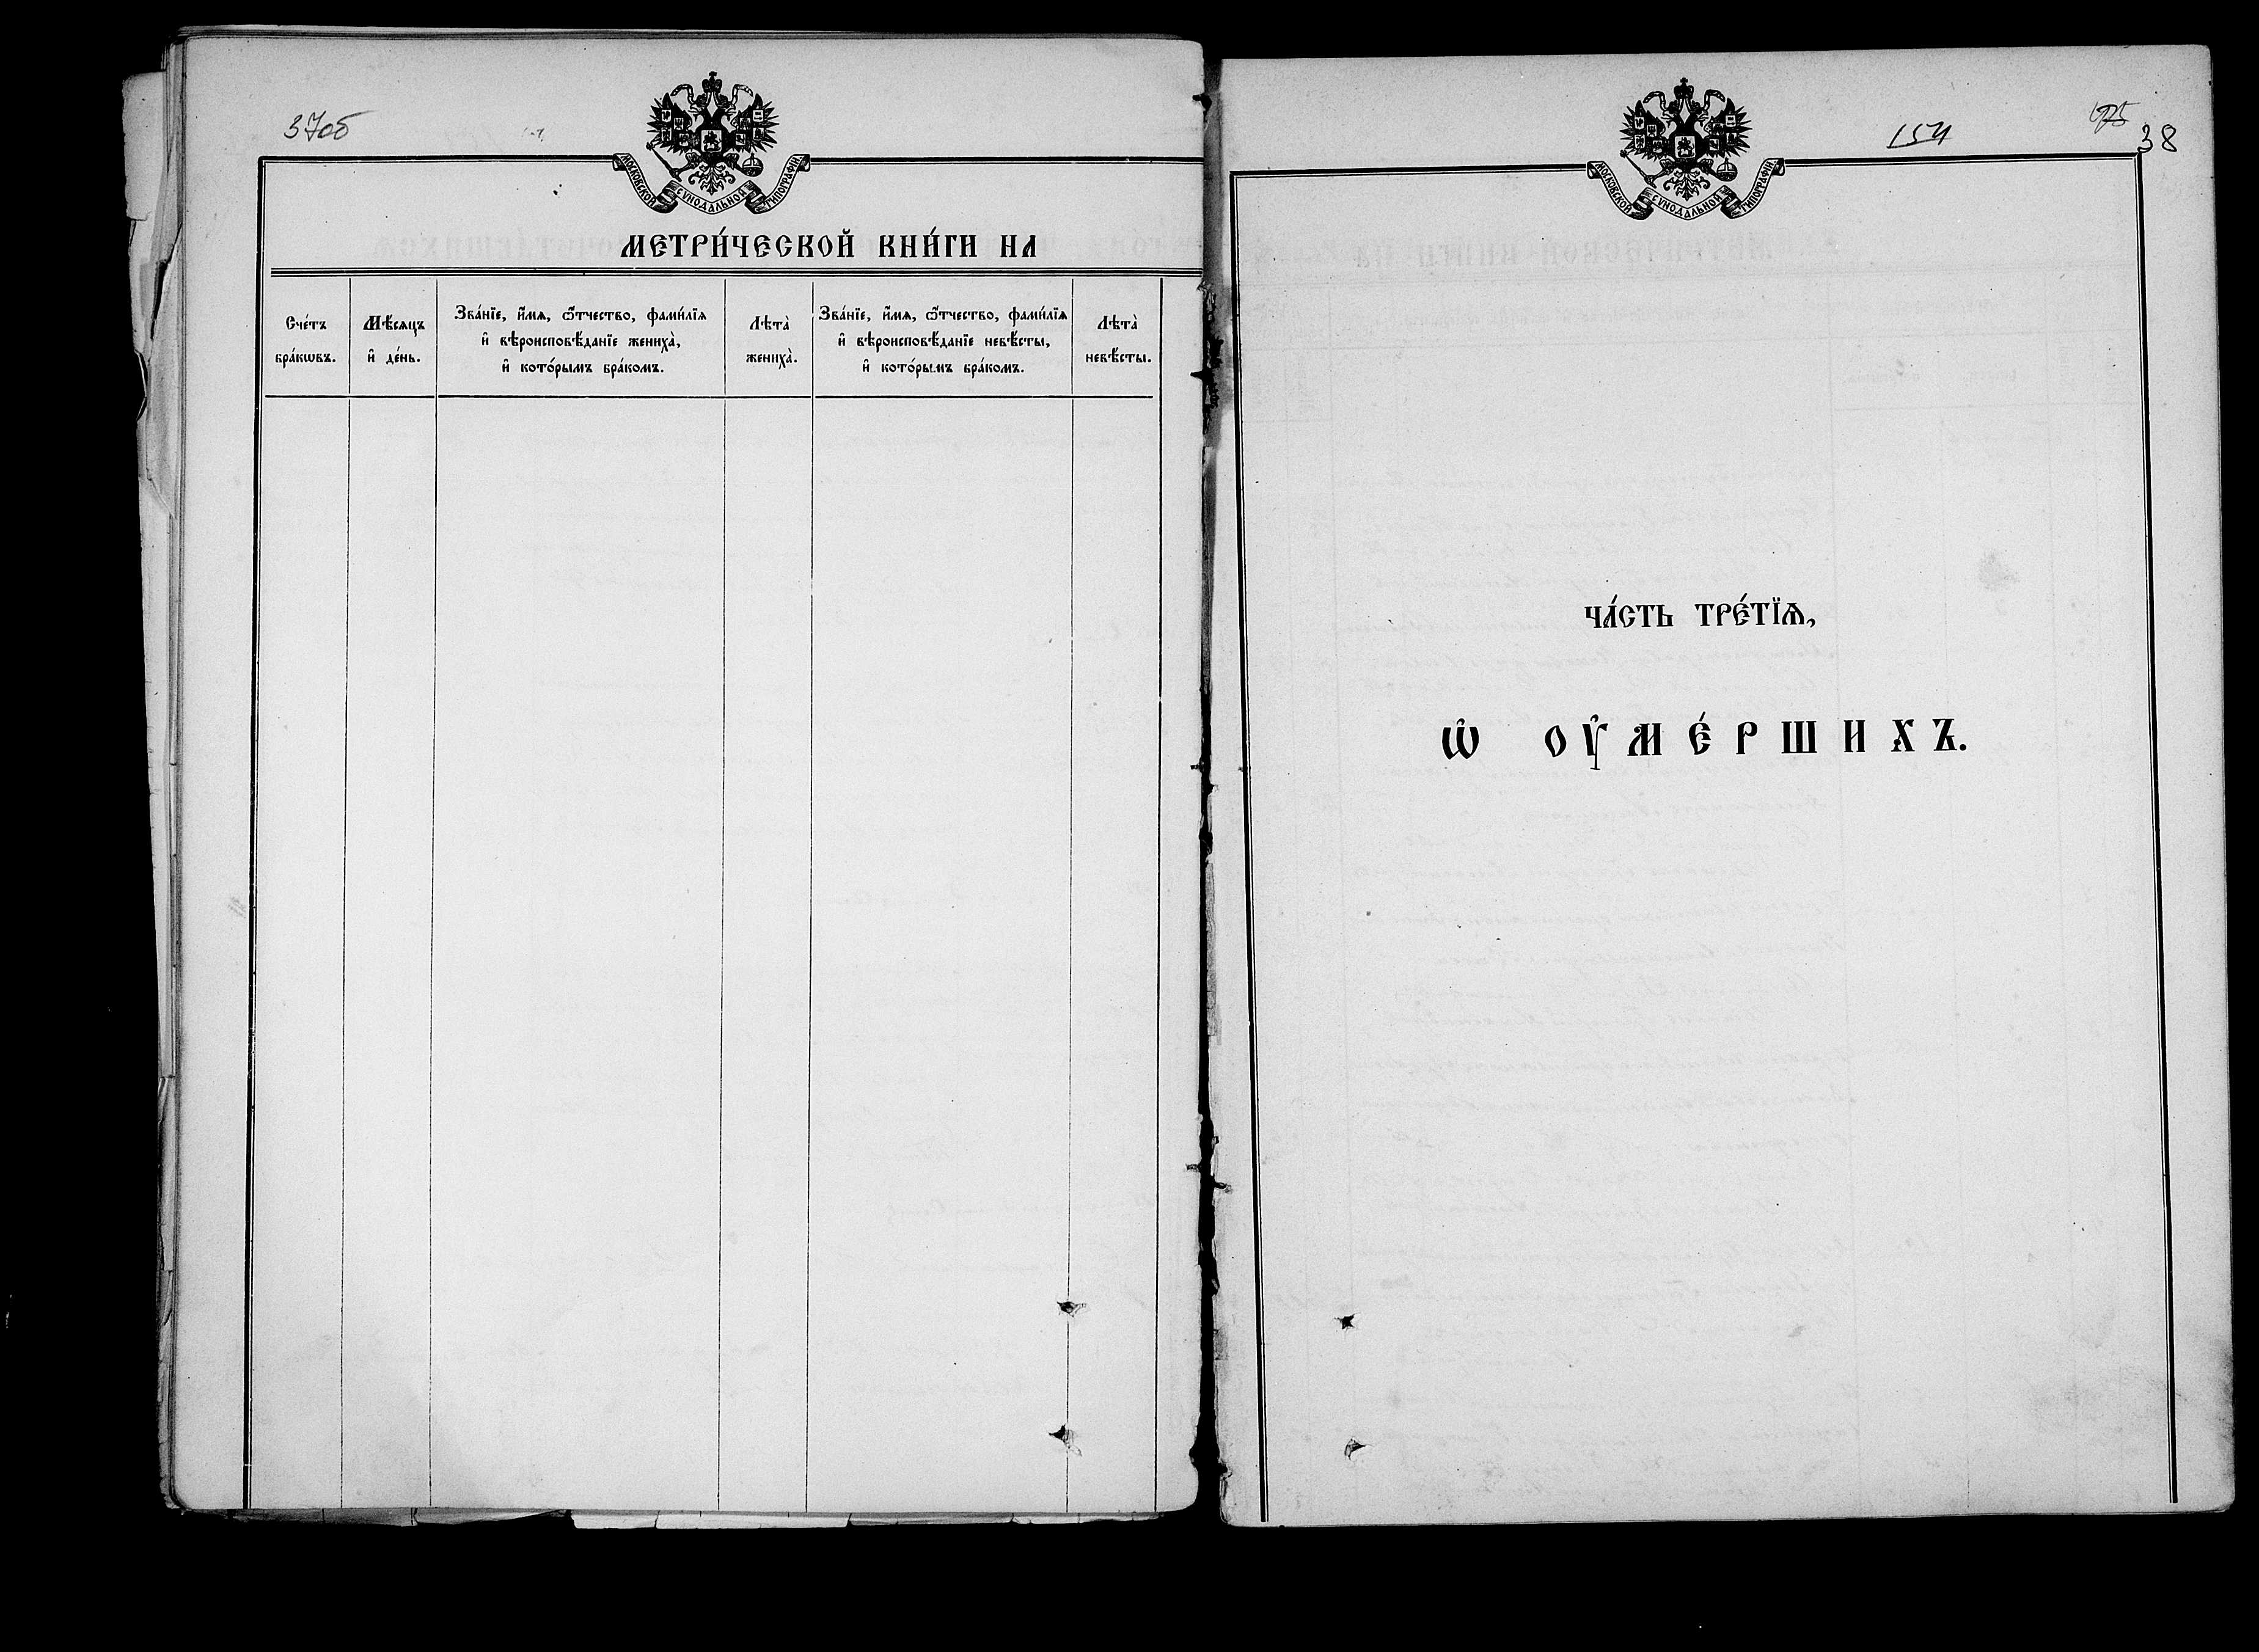 37об
МОСКОВСКОЙ СУНОДАЛЬНОЙ ТИПОГРАФІИ
МЕТРИ́ЧЕСКОЙ КНИ́ГИ НА
Сче́тъ бра́кѡвъ.
Мѣ́сяцъ и҆ де́нь.
Зва́нїе, и҆́мѧ, ѻ҆́тчество, фами́лїѧ
и҆ вѣроисповѣ́данїе жениха̀,
и҆ кото́рымъ бра́комъ.
Лѣта̀ жениха̀.
Зва́нїе, и҆́мѧ, ѻ҆́тчество, фами́лїѧ
и҆ вѣроисповѣ́данїе невѣ́сты,
и҆ кото́рымъ бра́комъ.
Лѣта̀ невѣ́сты.
154
38
МОСКОВСКОЙ СУНОДАЛЬНОЙ ТИПОГРАФІИ
ЧА́СТЬ ТРЕ́ТЇѦ,
Ѡ҆ ОУ҆МЕ́РШИХЪ.